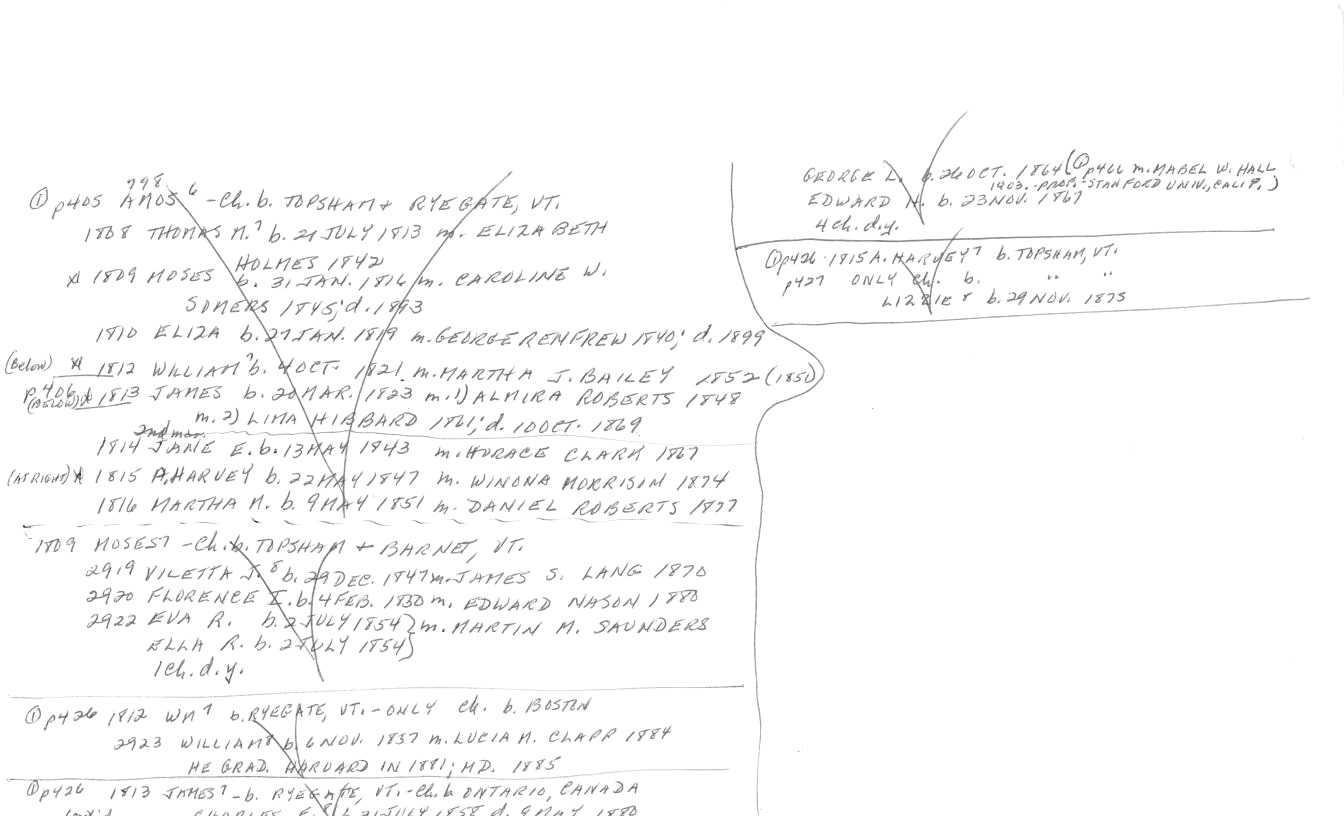 798
① p405 AMOS 6 - Ch. b. TOPSHAM + RYEGATE, VT.
1808 THOMAS M.7 b. 21 JULY 1813 m. ELIZABETH
HOLMES 1842
1809 MOSES b. 31 JAN. 1816 m. CAROLINE W.
SOMERS 1845; d. 1893
1810 ELIZA b. 27 JAN. 1819 m. GEORGE RENFREW 1840; d. 1899
(Below) 1812 WILLIAM 7 b. 4 OCT. 1821 m. MARTHA J. BAILEY 1852 (1850)
p. 406 (BELOW) 1813 JAMES b. 20 MAR. 1823 m. 1) ALMIRA ROBERTS 1848
m. 2) LIMA HIBBARD 1861; d. 10 OCT. 1869
2nd mar.
1814 JANE E. b. 13 MAY 1843 m. HORACE CLARK 1867
(AT RIGHT) 1815 A. HARVEY b. 22 MAY 1847 m. WINONA MORRISON 1874
1816 MARTHA M. b. 9 MAY 1851 m. DANIEL ROBERTS 1877
1809 MOSES 7 - Ch. b. TOPSHAM + BARNET, VT.
2919 VILETTA J. 8 b. 29 DEC. 1847 m. JAMES S. LANG 1870
2920 FLORENCE I. b. 4 FEB. 1850 m. EDWARD NASON 1880
2922 EVA R. b. 2 JULY 1854 } m. MARTIN M. SAUNDERS
ELLA R. b. 2 JULY 1854 }
1 ch. d. y.
① p426 1812 WM 7 b. RYEGATE, VT. - ONLY Ch. b. BOSTON
2923 WILLIAM 8 b. 6 NOV. 1857 m. LUCIA M. CLAPP 1884
HE GRAD. HARVARD IN 1881; MD. 1885
① p426 1813 JAMES 7 - b. RYEGATE, VT. - Ch. b. ONTARIO, CANADA
CHARLES E. 8 b. 21 JULY 1858 d. 9 MAY 1880
GEORGE L. b. 26 OCT. 1864 (① p466 m. MABEL W. HALL
1903. - PROF. - STANFORD UNIV., CALIF.)
EDWARD H. b. 23 NOV. 1867
4 ch. d. y.
① p426 1815 A. HARVEY 7 b. TOPSHAM, VT.
p427 ONLY Ch. b. " "
LIZZIE 8 b. 29 NOV. 1875